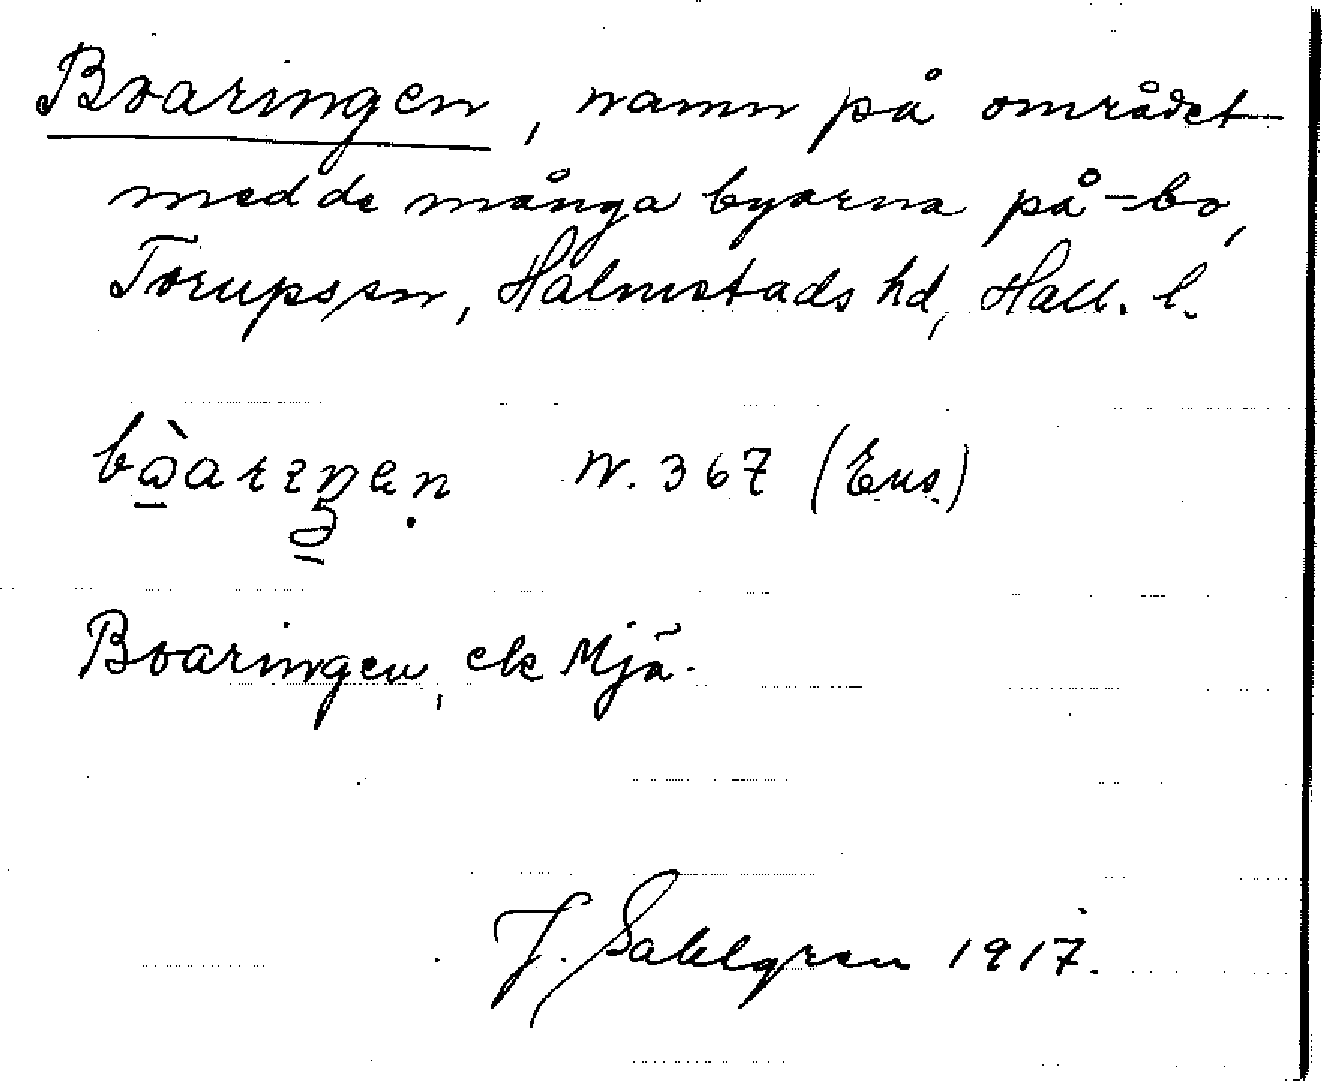 Boaringen, namn på området
med de många byarna på -bo,
Torups sn, Halmstads hd, Hall. l.
N. 367 (Ens.)
Boaringen, ek Mjä.
J. Sahlgren 1917.